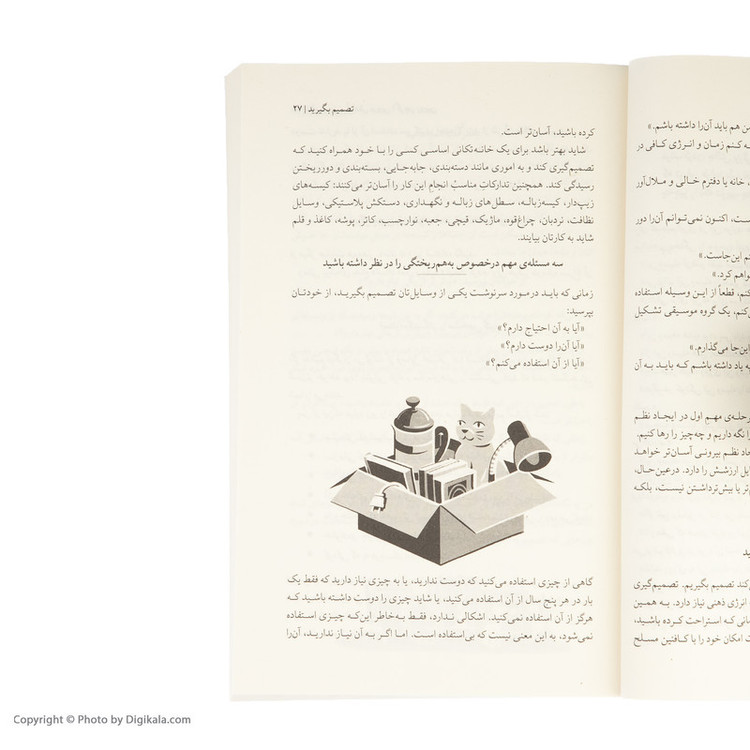 تصمیم بگیرید | ۲۷
کرده باشید، آسان‌تر است.
شاید بهتر باشد برای یک خانه‌تکانی اساسی کسی را با خود همراه کنید که
تصمیم‌گیری کند و به اموری مانند دسته‌بندی، جابه‌جایی، بسته‌بندی و دورریختن
رسیدگی کند. همچنین تدارکاتِ مناسبْ انجام این کار را آسان‌تر می‌کنند: کیسه‌های
زیپ‌دار، کیسه‌زباله، سطل‌های زباله و نگهداری، دستکش پلاستیکی، وسایل
نظافت، نردبان، چراغ‌قوه، ماژیک، قیچی، جعبه، نوارچسب، کاتر، پوشه، کاغذ و قلم
شاید به کارتان بیایند.
سه مسئله‌ی مهم درخصوص به‌هم‌ریختگی را در نظر داشته باشید
زمانی که باید درمورد سرنوشت یکی از وسایل‌تان تصمیم بگیرید، از خودتان
بپرسید:
«آیا به آن احتیاج دارم؟»
«آیا آن‌را دوست دارم؟»
«آیا از آن استفاده می‌کنم؟»
گاهی از چیزی استفاده می‌کنید که دوست ندارید، یا به چیزی نیاز دارید که فقط یک
بار در هر پنج سال از آن استفاده می‌کنید، یا شاید چیزی را دوست داشته باشید که
هرگز از آن استفاده نمی‌کنید. اشکالی ندارد، فقط به‌خاطر این‌که چیزی استفاده
نمی‌شود، به این معنی نیست که بی‌استفاده است. اما اگر به آن نیاز ندارید، آن‌را
من هم باید آن‌را داشته باشم.»
کنم زمان و انرژی کافی در
خانه یا دفترم خالی و ملال‌آور
اکنون نمی‌توانم آن‌را دور
این‌جاست.»
کرد.»
قطعاً از این وسیله استفاده
یک گروه موسیقی تشکیل
این‌جا می‌گذارم.»
یاد داشته باشم که باید به آن
مهم اول در ایجاد نظم
نگه داریم و چه‌چیز را رها کنیم.
نظم بیرونی آسان‌تر خواهد
ارزشش را دارد. درعین‌حال،
یا بیش‌ترداشتن نیست، بلکه
تصمیم بگیریم. تصمیم‌گیری
انرژی ذهنی نیاز دارد. به همین
که استراحت کرده باشید،
امکان خود را با کافئین مسلح
Copyright © Photo by Digikala.com